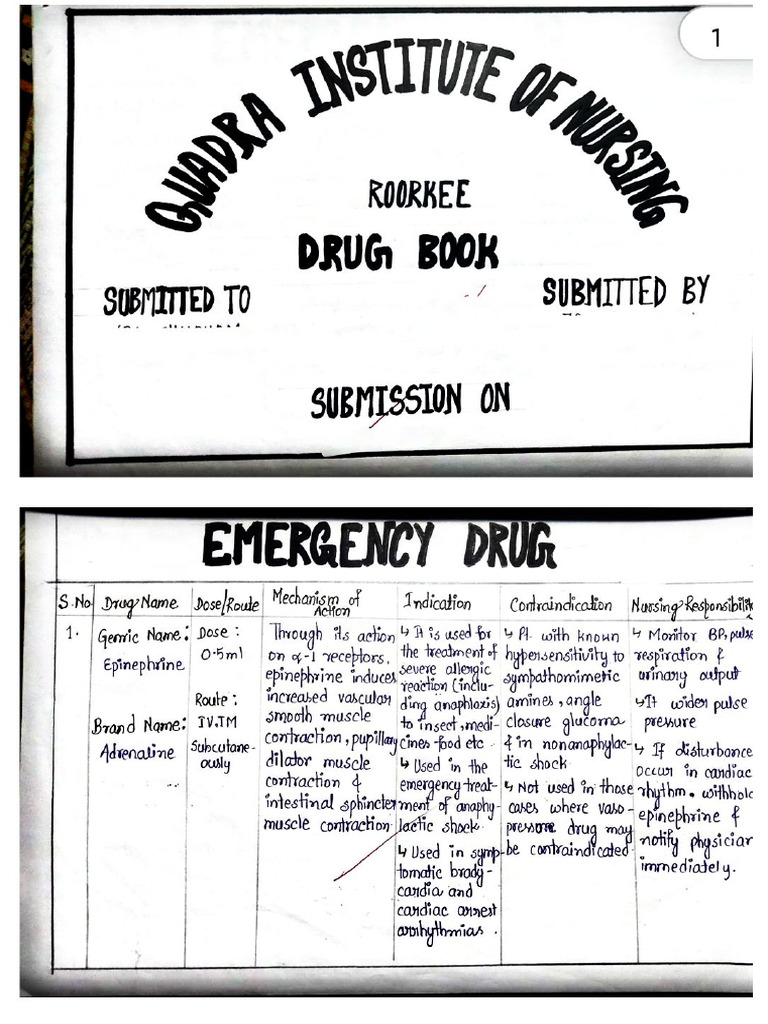 1
QUADRA INSTITUTE OF NURSING
ROORKEE
DRUG BOOK
SUBMITTED TO
SUBMITTED BY
SUBMISSION ON
EMERGENCY DRUG
S.No
Drug Name
Dose/Route
Mechanism of
Action
Indication
Contraindication
Nursing Responsibilit
1.
Genric Name:
Epinephrine
Brand Name:
Adrenaline
Dose:
0.5ml
Route:
IV,IM
Subcutane-
ously
Through its action
on α-1 receptors,
epinephrine induces
increased vascular
smooth muscle
contraction, pupillary
dilator muscle
contraction &
intestinal sphincter
muscle contraction
↳ It is used for
the treatment of
severe allergic
reaction (inclu-
ding anaphlaxis)
to insect, medi-
cines food etc
↳ Used in the
emergency treat-
ment of anaphy-
lactic shock.
↳ Used in symp-
tomatic brady-
cardia and
cardiac arrest
arrhythmias.
↳ Pt. with known
hypersensitivity to
sympathomimetic
amines, angle
closure glucoma
& in nonanaphylac-
tic shock
↳ Not used in those
cases where vaso-
pressore drug may
be contraindicated
↳ Monitor BP, pulse
respiration &
urinary output
↳ It widen pulse
pressure
↳ If disturbance
occur in cardiac
rhythm. withhold
epinephrine &
notify physician
immediately.